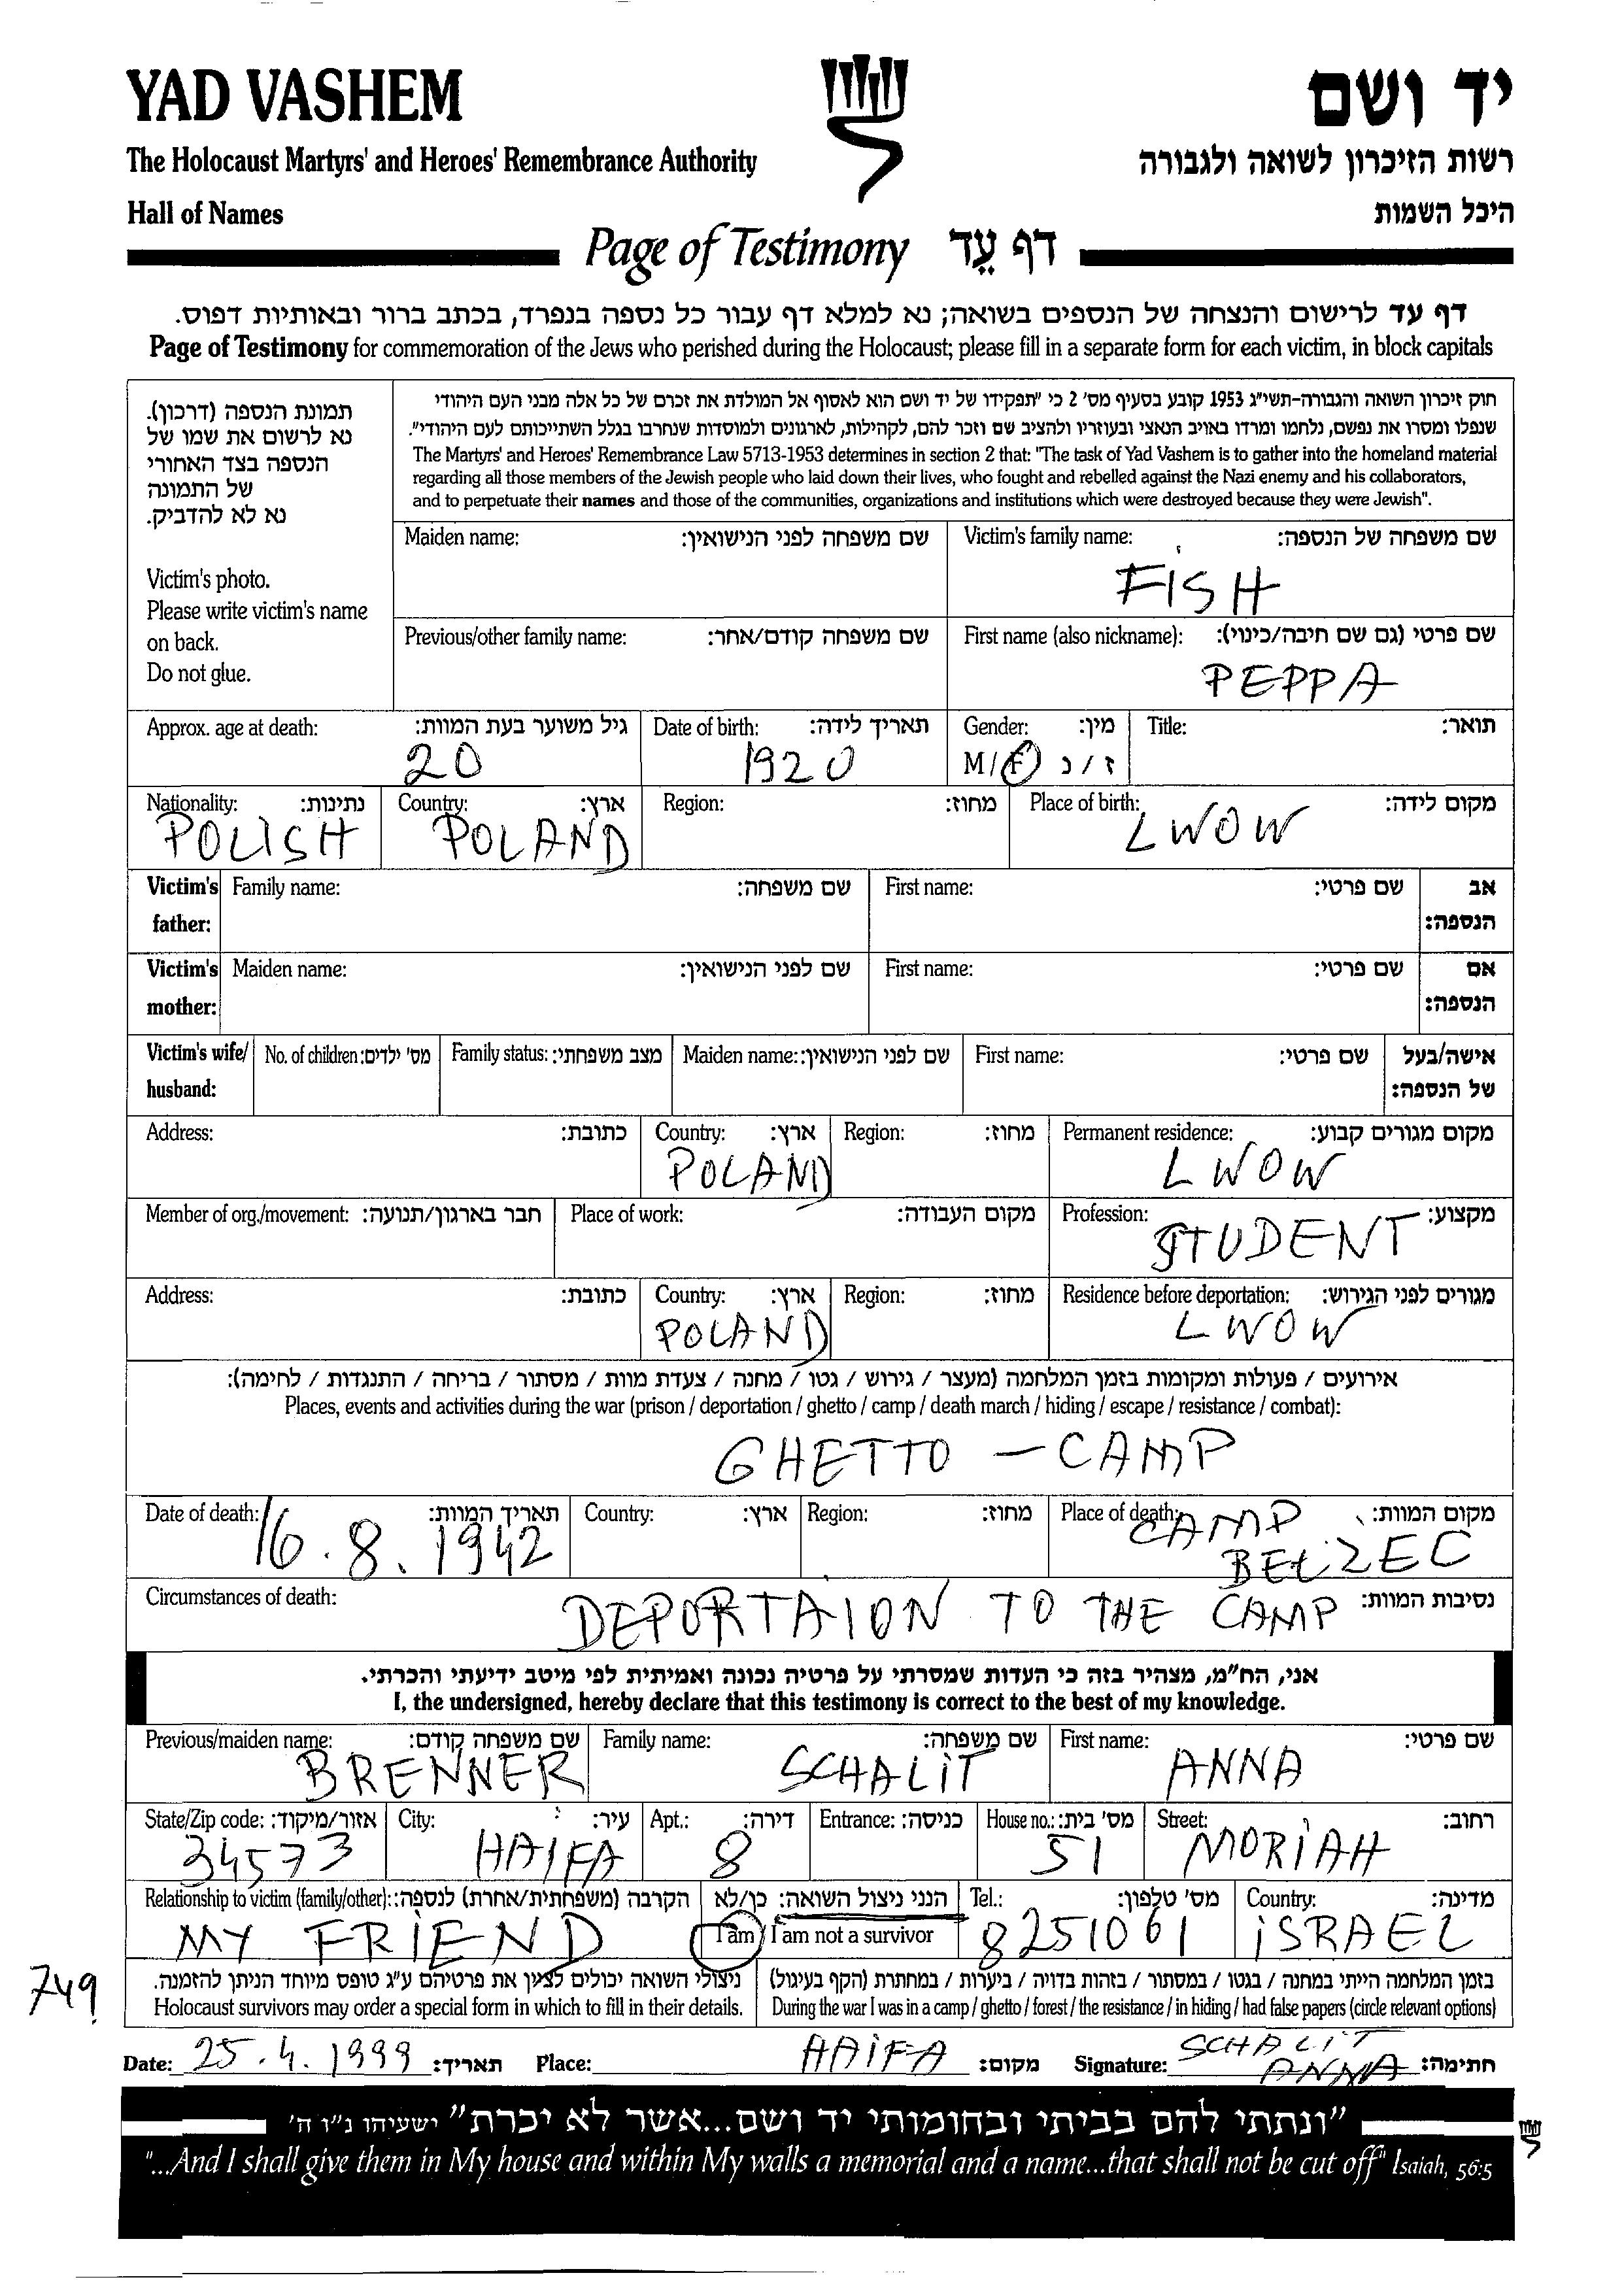 YAD VASHEM
יד ושם
The Holocaust Martyrs' and Heroes' Remembrance Authority
רשות הזיכרון לשואה ולגבורה
Hall of Names
היכל השמות
Page of Testimony דף עֵד
דף עד לרישום והנצחה של הנספים בשואה; נא למלא דף עבור כל נספה בנפרד, בכתב ברור ובאותיות דפוס.
Page of Testimony for commemoration of the Jews who perished during the Holocaust; please fill in a separate form for each victim, in block capitals
תמונת הנספה (דרכון).
נא לרשום את שמו של
הנספה בצד האחורי
של התמונה
נא לא להדביק.
Victim's photo.
Please write victim's name
on back.
Do not glue.
חוק זיכרון השואה והגבורה-תשי"ג 1953 קובע בסעיף מס' 2 כי "תפקידו של יד ושם הוא לאסוף אל המולדת את זכרם של כל אלה מבני העם היהודי
שנפלו ומסרו את נפשם, נלחמו ומרדו באויב הנאצי ובעוזריו ולהציב שם וזכר להם, לקהילות, לארגונים ולמוסדות שנחרבו בגלל השתייכותם לעם היהודי".
The Martyrs' and Heroes' Remembrance Law 5713-1953 determines in section 2 that: "The task of Yad Vashem is to gather into the homeland material
regarding all those members of the Jewish people who laid down their lives, who fought and rebelled against the Nazi enemy and his collaborators,
and to perpetuate their names and those of the communities, organizations and institutions which were destroyed because they were Jewish".
Maiden name: שם משפחה לפני הנישואין: Victim's family name: שם משפחה של הנספה:
FISH
Previous/other family name: שם משפחה קודם/אחר: First name (also nickname): שם פרטי (גם שם חיבה/כינוי):
PEPPA
Approx. age at death: גיל משוער בעת המוות: Date of birth: תאריך לידה: Gender: מין: Title: תואר:
20 1920 M/F ז/נ
Nationality: נתינות: Country: ארץ: Region: מחוז: Place of birth: מקום לידה:
POLISH POLAND LWOW
Victim's Family name: שם משפחה: First name: שם פרטי: אב
father: הנספה:
Victim's Maiden name: שם לפני הנישואין: First name: שם פרטי: אם
mother: הנספה:
Victim's wife/ No. of children: מס' ילדים: Family status: מצב משפחתי: Maiden name: שם לפני הנישואין: First name: שם פרטי: אישה/בעל
husband: של הנספה:
Address: כתובת: Country: ארץ: Region: מחוז: Permanent residence: מקום מגורים קבוע:
POLAND LWOW
Member of org./movement: חבר בארגון/תנועה: Place of work: מקום העבודה: Profession: מקצוע:
STUDENT
Address: כתובת: Country: ארץ: Region: מחוז: Residence before deportation: מגורים לפני הגירוש:
POLAND LWOW
אירועים / פעולות ומקומות בזמן המלחמה (מעצר / גירוש / גטו / מחנה / צעדת מוות / מסתור / בריחה / התנגדות / לחימה):
Places, events and activities during the war (prison / deportation / ghetto / camp / death march / hiding / escape / resistance / combat):
GHETTO - CAMP
Date of death: תאריך המוות: Country: ארץ: Region: מחוז: Place of death: מקום המוות:
16.8.1942 CAMP
BEŁZEC
Circumstances of death: נסיבות המוות:
DEPORTAION TO THE CAMP
אני, הח"מ, מצהיר בזה כי העדות שמסרתי על פרטיה נכונה ואמיתית לפי מיטב ידיעתי והכרתי.
I, the undersigned, hereby declare that this testimony is correct to the best of my knowledge.
Previous/maiden name: שם משפחה קודם: Family name: שם משפחה: First name: שם פרטי:
BRENNER SCHALiT ANNA
State/Zip code: אזור/מיקוד: City: עיר: Apt.: דירה: Entrance: כניסה: House no.: מס' בית: Street: רחוב:
34573 HAIFA 8 51 MORiAH
Relationship to victim (family/other): הקרבה (משפחתית/אחרת) לנספה: הנני ניצול השואה: כן/לא Tel.: מס' טלפון: Country: מדינה:
MY FRIEND I am / I am not a survivor 8251061 iSRAEL
ניצולי השואה יכולים לציין את פרטיהם ע"ג טופס מיוחד הניתן להזמנה. בזמן המלחמה הייתי במחנה / בגטו / במסתור / בזהות בדויה / ביערות / במחתרת (הקף בעיגול)
749
Holocaust survivors may order a special form in which to fill in their details. During the war I was in a camp / ghetto / forest / the resistance / in hiding / had false papers (circle relevant options)
Date: 25.4.1999 תאריך: Place: HAiFA מקום: Signature: SCHALiT ANNA חתימה:
"ונתתי להם בביתי ובחומותי יד ושם...אשר לא יכרת" ישעיהו נ"ו ה'
"...And I shall give them in My house and within My walls a memorial and a name...that shall not be cut off" Isaiah, 56:5